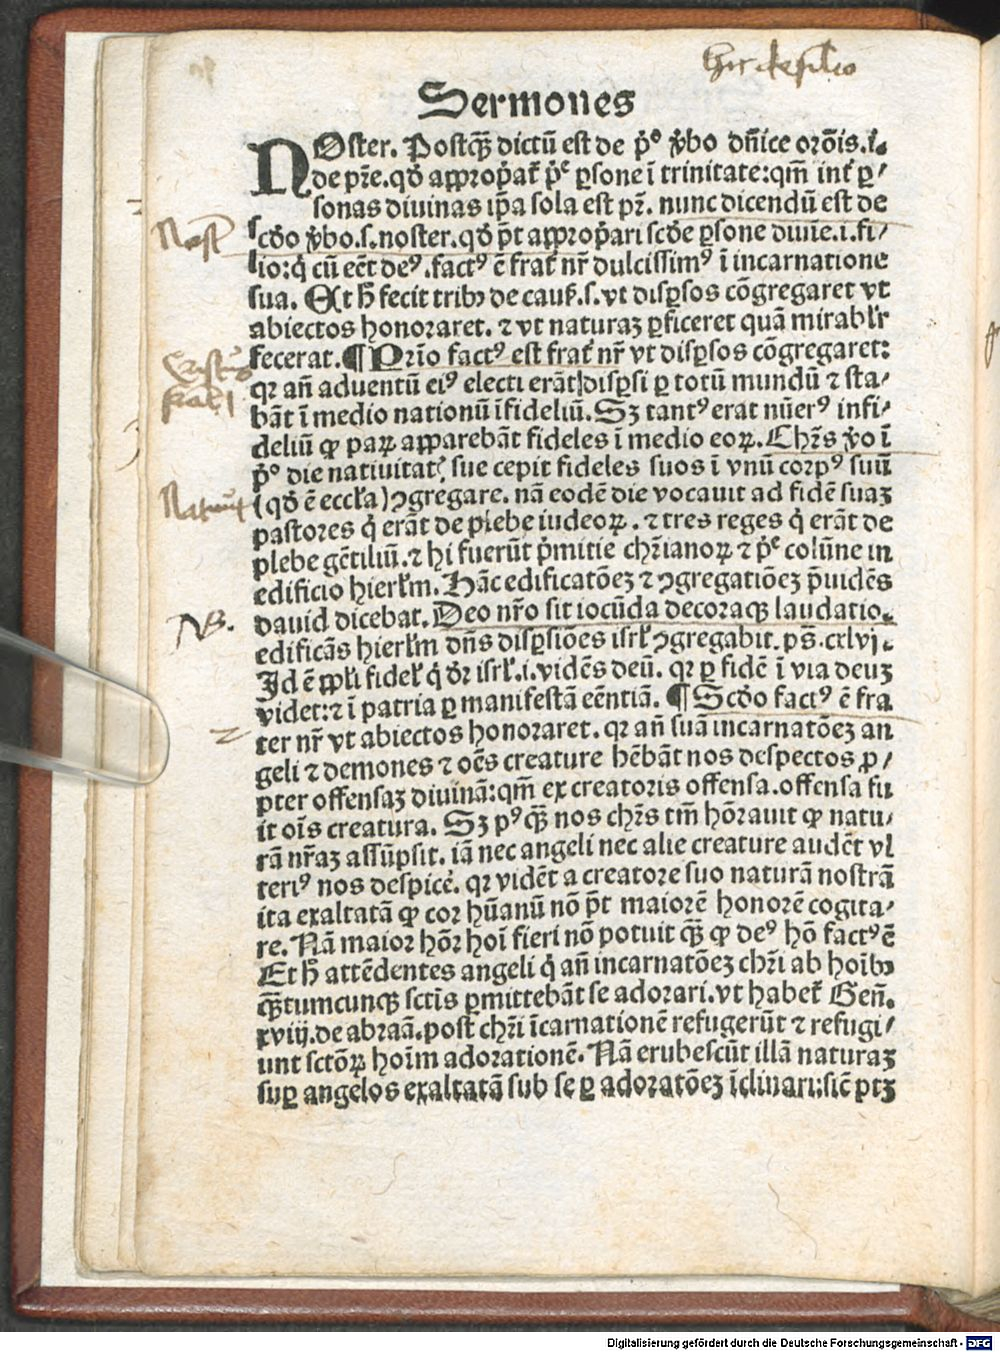 Sermones
NOster. Postqȝ dictū est de p̄º v̄bo dn̄ice orōis.i.
de pr̄e. qd̕ appropat̕ p̄ᵉ ꝑsone ī trinitate: qm̄ int̕ ꝑ/
sonas diuinas ip̄a sola est pr̄. nunc dicendū est de
scd̕o v̄bo .s. noster. qd̕ p̄t appropari scd̕e ꝑsone diuīe .i. fi/
lio: q̇ cū eēt deꝰ. factꝰ ē frat̕ nr̄ dulcissimꝰ ī incarnatione
sua. Et h̄ fecit tribꝫ de cauẜ .s. vt disꝑsos cōgregaret vt
abiectos honoraret. ⁊ vt naturaȝ ꝑficeret quā mirabil̕r
fecerat. ¶ Prīo factꝰ est frat̕ nr̄ vt disꝑsos cōgregaret:
qr an̄ aduentū eiꝰ electi erāt disꝑsi ꝑ totū mundū ⁊ sta/
bāt ī medio nationū īfideliū. Sȝ tantꝰ erat nūerꝰ infi/
deliū qꝫ paꝝ apparebāt fideles ī medio eoꝝ. Chr̄s v̄o ī
p̄º die natiuitat̕ sue cepit fideles suos ī vnū corpꝰ suū
(qd̕ ē eccl̕a) ꝯgregare. nā eodē die vocauit ad fidē suaȝ
pastores q̇ erāt de plebe iudeoꝝ. ⁊ tres reges q̇ erāt de
plebe gētiliū. ⁊ hi fuerūt p̄mitie chr̄ianoꝝ ⁊ p̄ᵉ colūne in
edificio hierl̕m. Hāc edificatōeȝ ⁊ ꝯgregatiōeȝ p̄uidēs
dauid dicebat. Deo nr̄o sit iocūda decoraqȝ laudatio.
edificās hierl̕m dn̄s disꝑsiōes isrl̕ ꝯgregabit. ps̄. cxlvj.
Id ē ppl̕i fidel̕ q̇ d̕r isrl̕ .i. vidēs deū. qr ꝑ fidē ī via deuȝ
videt: ⁊ ī patria ꝑ manifestā eēntiā. ¶ Scd̕o factꝰ ē fra
ter nr̄ vt abiectos honoraret. qr an̄ suā incarnatōeȝ an
geli ⁊ demones ⁊ oēs creature hēbāt nos despectos ꝓ/
pter offensaȝ diuinā: qm̄ ex creatoris offensa. offensa fu
it oīs creatura. Sȝ pꝰ qȝ nos chr̄s tm̄ hōrauit qꝫ natu/
rā nr̄aȝ assūpsit. iā nec angeli nec alie creature audēt vl
teriꝰ nos despicẻ. qr vidēt a creatore suo naturā nostrā
ita exaltatā qꝫ cor hūanū nō p̄t maiorē honorē cogita/
re. Nā maior hōr hoī fieri nō potuit qȝ qꝫ deꝰ hō factꝰ ē
Et h̄ attēdentes angeli q̇ an̄ incarnatōeȝ chr̄i ab hoībꝫ
qȝtumcunqȝ sctīs ꝑmittebāt se adorari. vt habet̕ Gen̄.
xviij. de abraā. post chr̄i īcarnationē refugerūt ⁊ refugi/
unt sctōꝝ hoīm adorationē. Nā erubescūt illā naturaȝ
suꝑ angelos exaltatā sub se ꝑ adoratōeȝ īclinari: sic̄ ptȝ
NB.
Digitalisierung gefördert durch die Deutsche Forschungsgemeinschaft - DFG